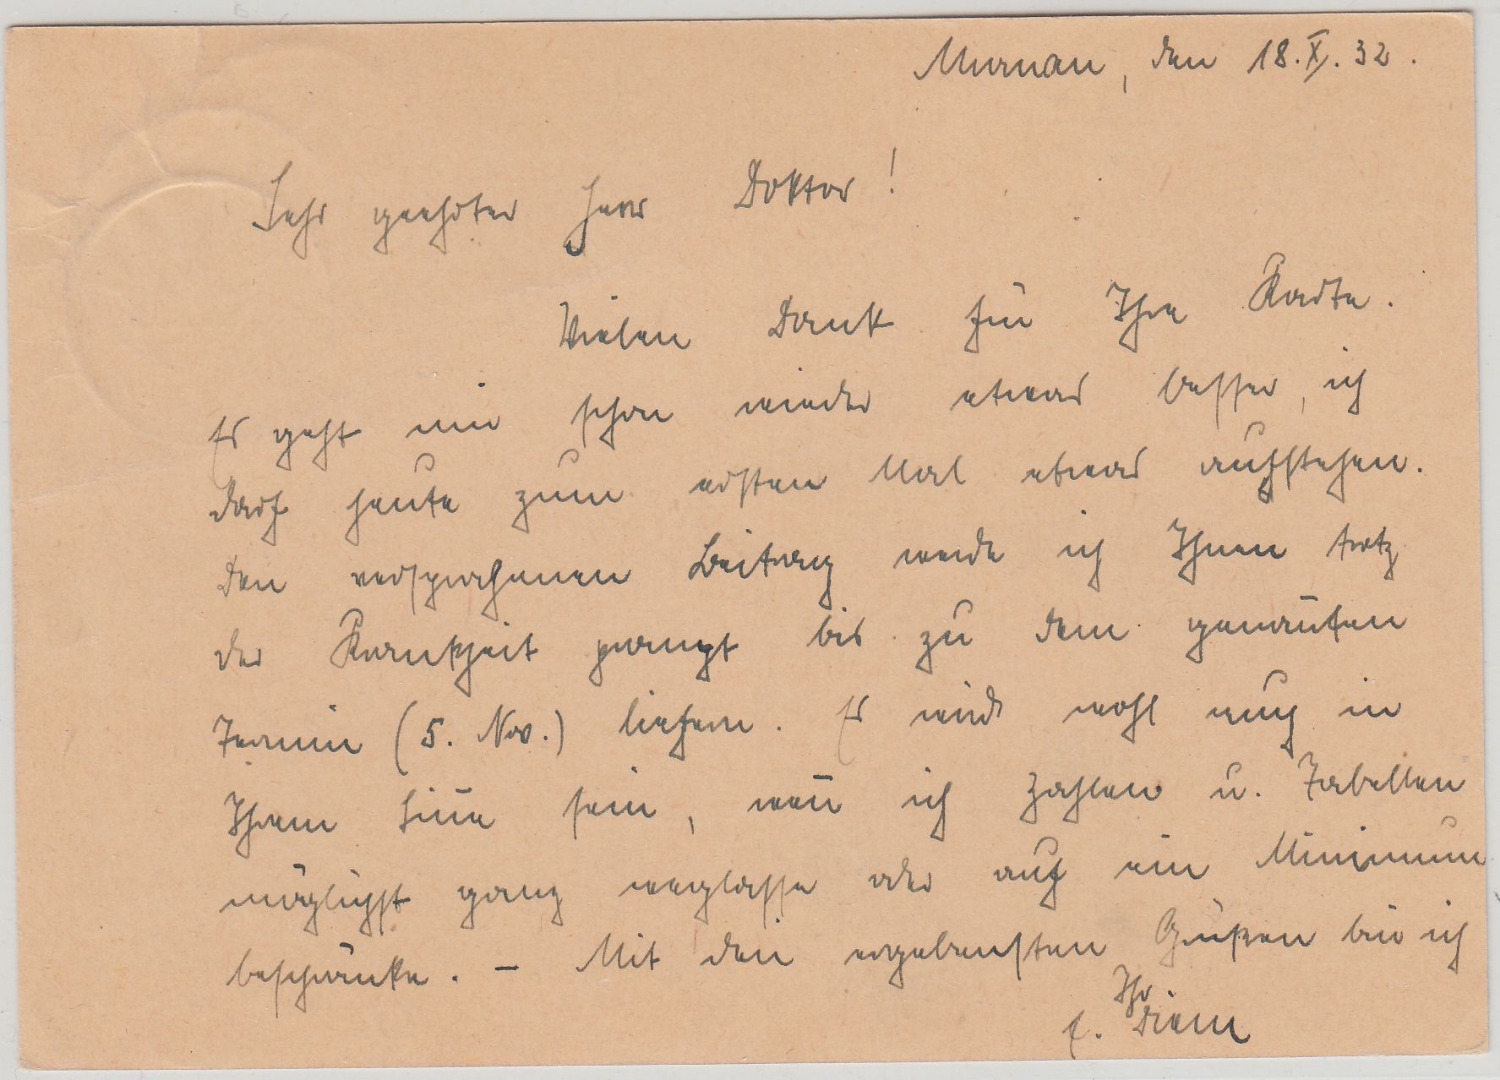 Murnau, den 18.X.32.
Sehr geehrter Herr Doktor!
Vielen Dank für Ihre Karte.
Es geht mir schon wieder etwas besser, ich
darf heute zum ersten Mal etwas aufstehen.
Den versprochenen Beitrag werde ich Ihnen trotz
der Krankheit prompt bis zu dem genannten
Termin (5. Nov.) liefern. Es wird wohl auch in
Ihrem Sinne sein, wenn ich Zahlen u. Tabellen
möglichst ganz weglasse oder auf ein Minimum
beschränke. – Mit den ergebensten Grüßen bin ich
Ihr
Diem